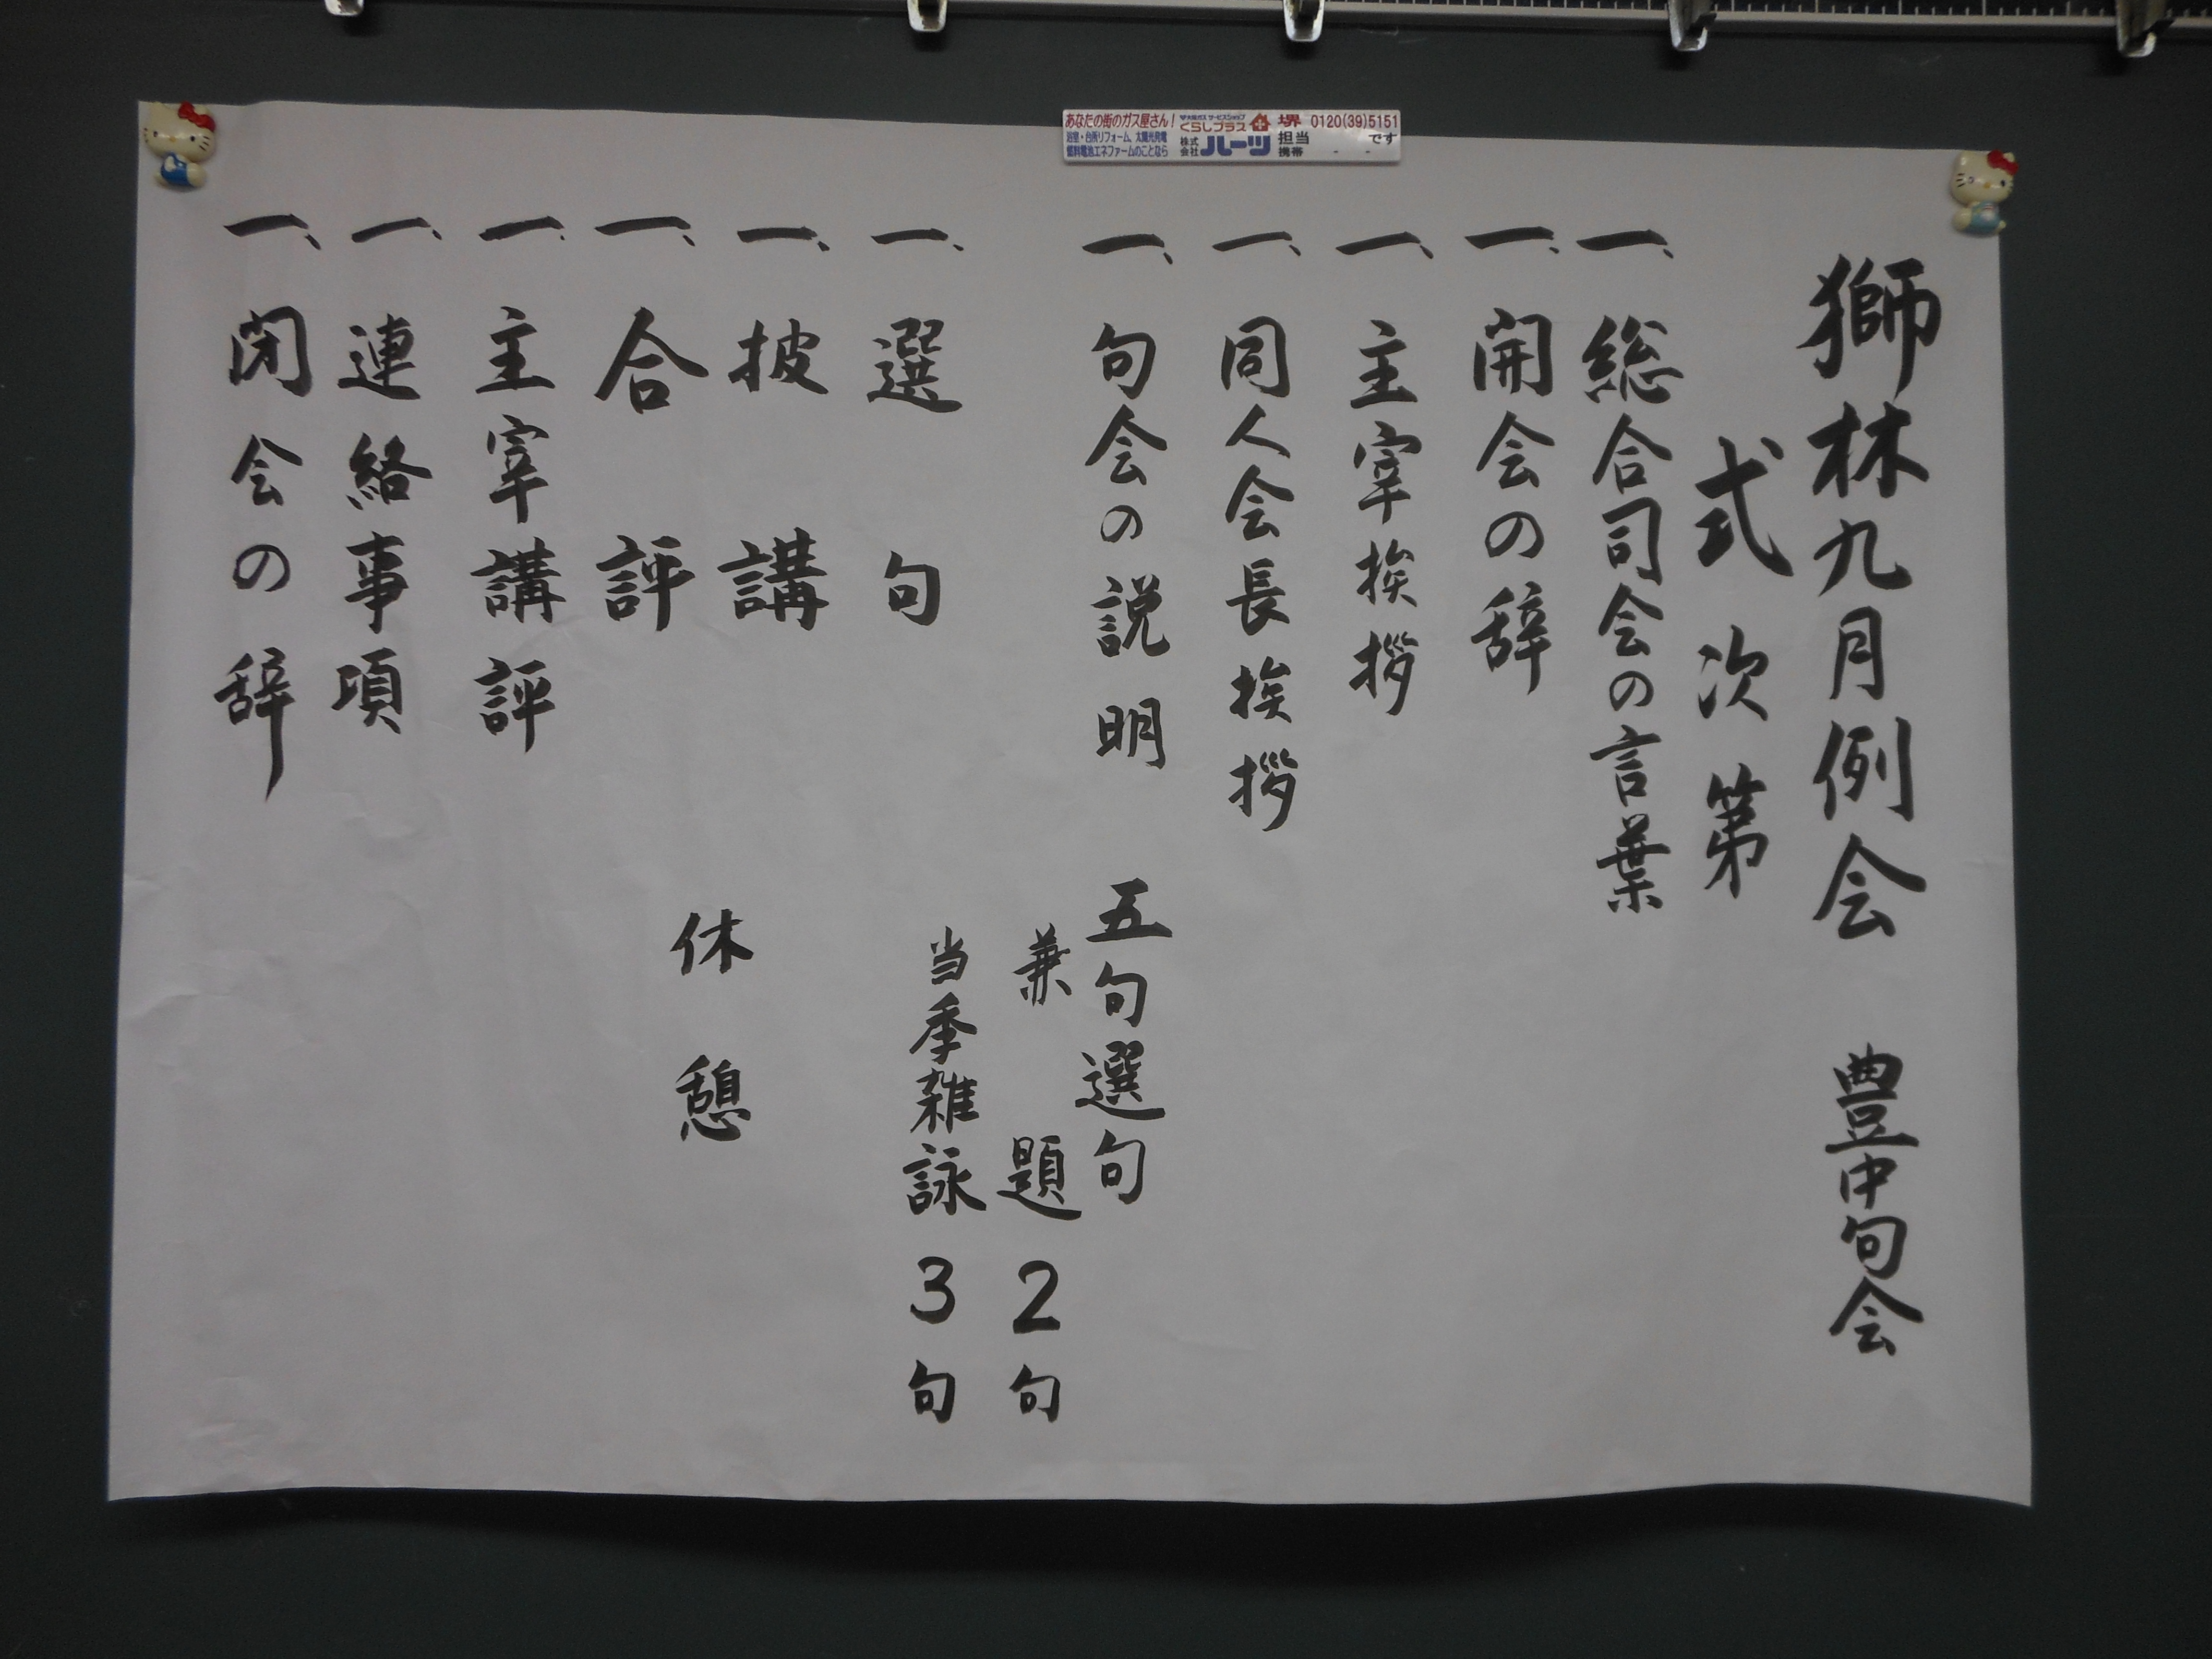 獅林九月例会　豊中句会
式次第
一、総合司会の言葉
一、開会の辞
一、主宰挨拶
一、同人会長挨拶
一、句会の説明　五句選句
兼題　2句
当季雑詠　3句
一、選句
一、披講
休憩
一、合評
一、主宰講評
一、連絡事項
一、閉会の辞
あなたの街のガス屋さん！
浴室・台所リフォーム、太陽光発電
燃料電池エネファームのことなら
大阪ガス サービスショップ
くらしプラス
株式会社ハーツ
堺 0120(39)5151
担当　です
携帯　-　-